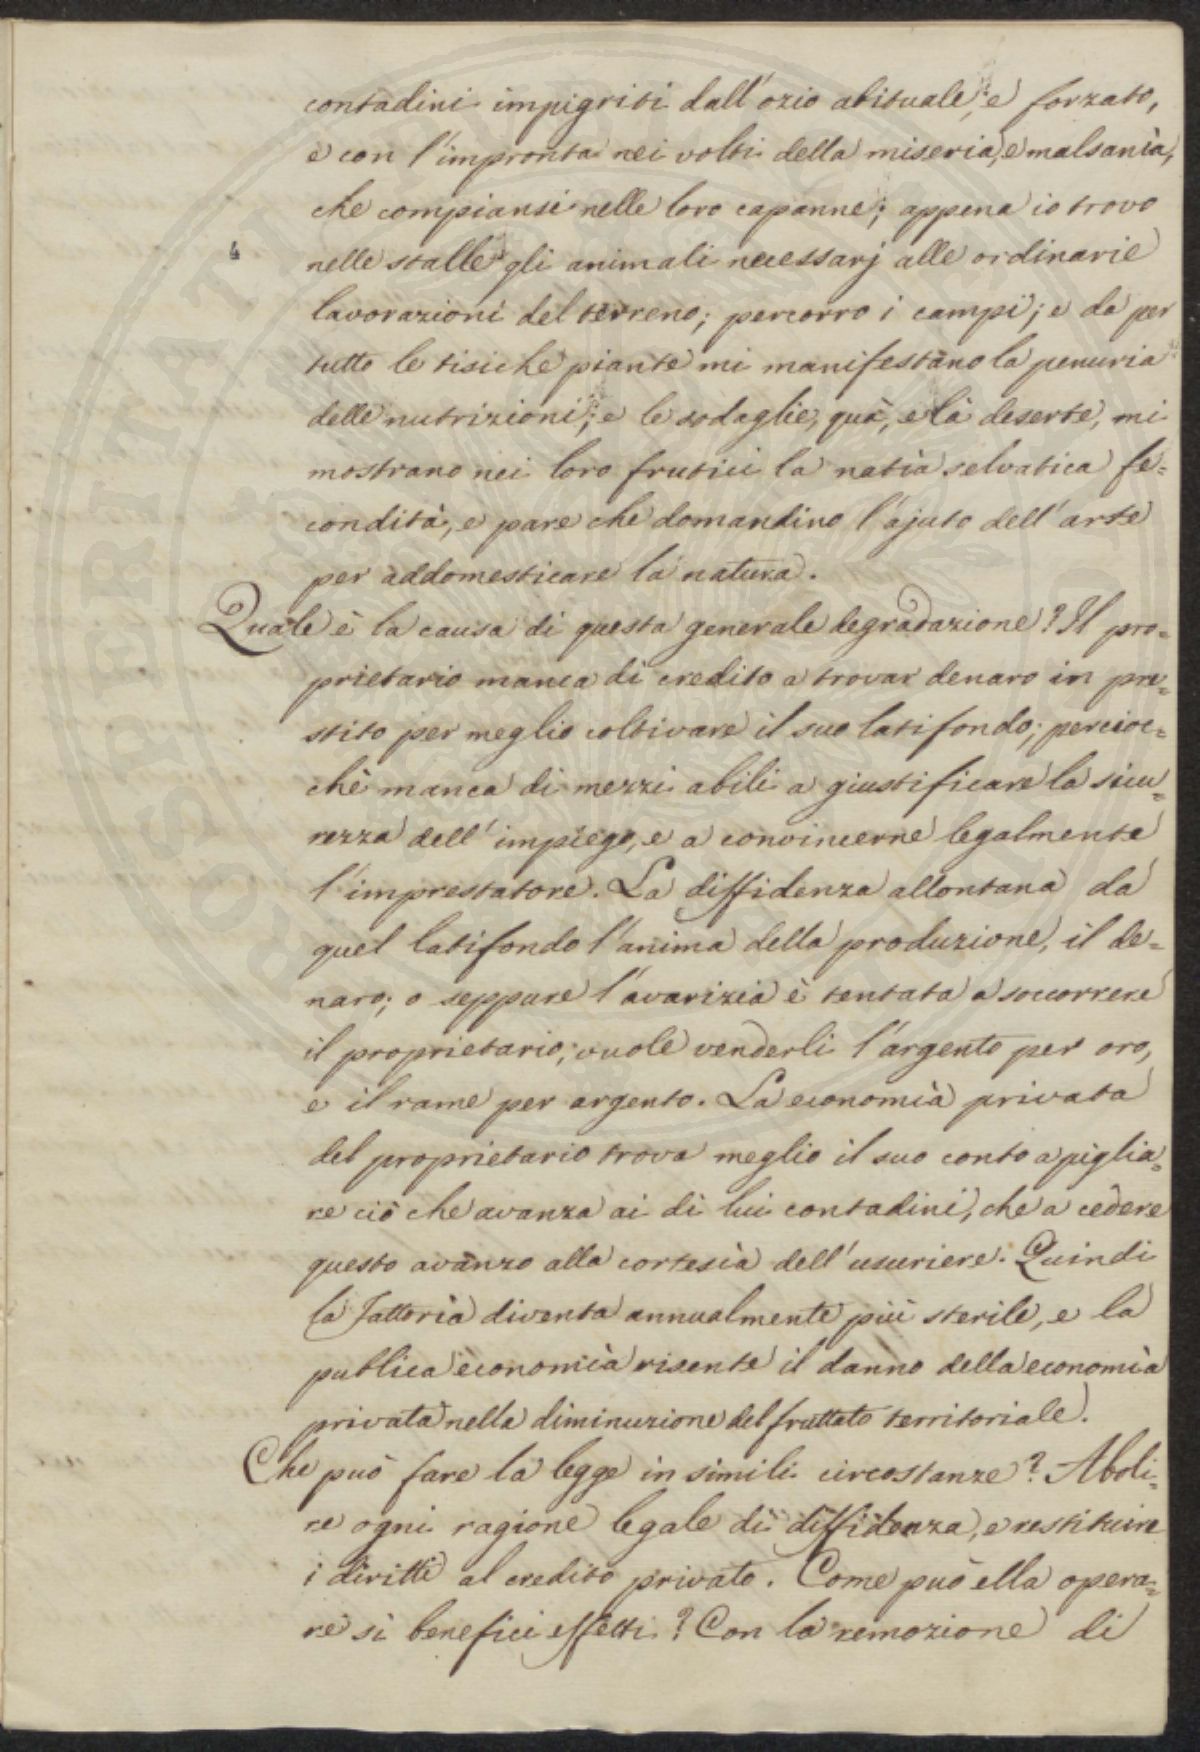 contadini impigriti dall'ozio abituale, e forzato,
e con l'impronta nei volti della miseria, e malsanìa,
che compiansi nelle loro capanne; appena io trovo
4
nelle stalle gli animali necessarj alle ordinarie
lavorazioni del terreno; percorro i campi; e da per
tutto le tisiche piante mi manifestano la penuria
delle nutrizioni; e le sodaglie, quà, e là deserte, mi
mostrano nei loro frutici la natìa selvatica fe=
condità, e pare che domandino l'ajuto dell'arte
per addomesticare la natura.
Quale è la causa di questa generale degradazione? Il pro=
prietario manca di credito a trovar denaro in pre=
stito per meglio coltivare il suo latifondo; percioc=
chè manca di mezzi abili a giustificare la sicu=
rezza dell'impiego, e a convincerne legalmente
l'imprestatore. La diffidenza allontana da
quel latifondo l'anima della produzione, il de=
naro; o seppure l'avarizia è tentata a soccorrere
il proprietario, vuole venderli l'argento per oro,
e il rame per argento. La economìa privata
del proprietario trova meglio il suo conto a piglia=
re ciò che avanza ai di lui contadini, che a cedere
questo avanzo alla cortesìa dell'usuriere. Quindi
la Fattorìa diventa annualmente più sterile, e la
publica economìa risente il danno della economìa
privata nella diminuzione del fruttato territoriale.
Che può fare la legge in simili circostanze? Aboli=
re ogni ragione legale di diffidenza, e restituire
i diritti al credito privato. Come può ella opera=
re sì benefici effetti? Con la remozione di